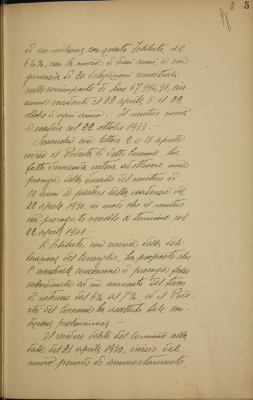 5
di un mutuo, con questo Istituto, al
6½%, con la mora di dieci anni, e con
garanzia di 20 delegazioni semestrali
nell'importo di Lire 67.194,91, cia-
scuna scadenti il 22 aprile e il 22
ottobre di ogni anno. - Il mutuo verrà
a scadere col 22 ottobre 1933. -
Senonchè con lettere 2 e 17 aprile
1930 il Podestà di detto Comune ha
fatto domanda intesa ad ottenere una
proroga della durata del mutuo di
10 anni a partire dalla scadenza del
22 aprile 1930, in modo che il mutuo
così prorogato verrebbe a terminare col
22 aprile 1940. -
L'Istituto, con norma della deli-
berazione del Consiglio, ha proposto che
l'eventuale concessione di proroga fosse
subordinata ad un aumento del tasso
di interesse dal 6½ al 7% ed il Pode-
stà del Comune ha accettato tale con-
dizione preliminare. -
Il residuo debito del Comune alla
data del 22 aprile 1930, inizio del
nuovo periodo di ammortamento,